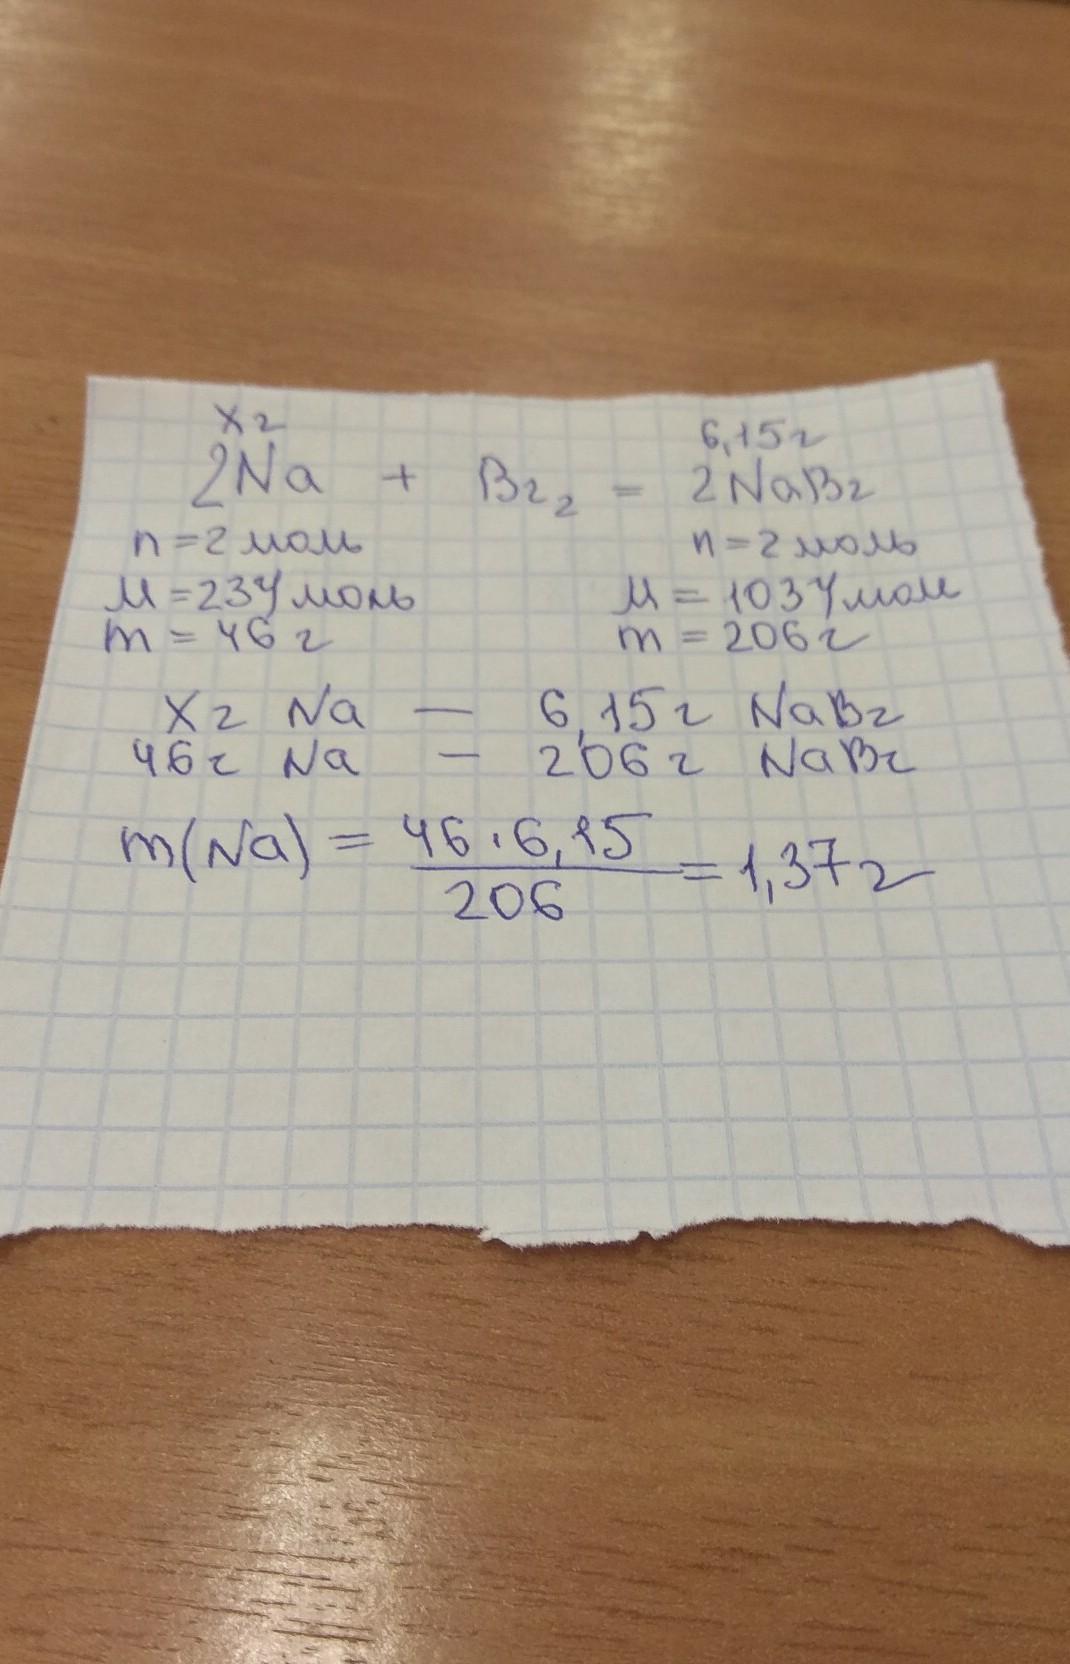 x г 6,15 г
2Na + Br₂ = 2NaBr
n = 2 моль n = 2 моль
M = 23 г/моль M = 103 г/моль
m = 46 г m = 206 г
x г Na — 6,15 г NaBr
46 г Na — 206 г NaBr
m(Na) = 46 · 6,15 / 206 = 1,37 г